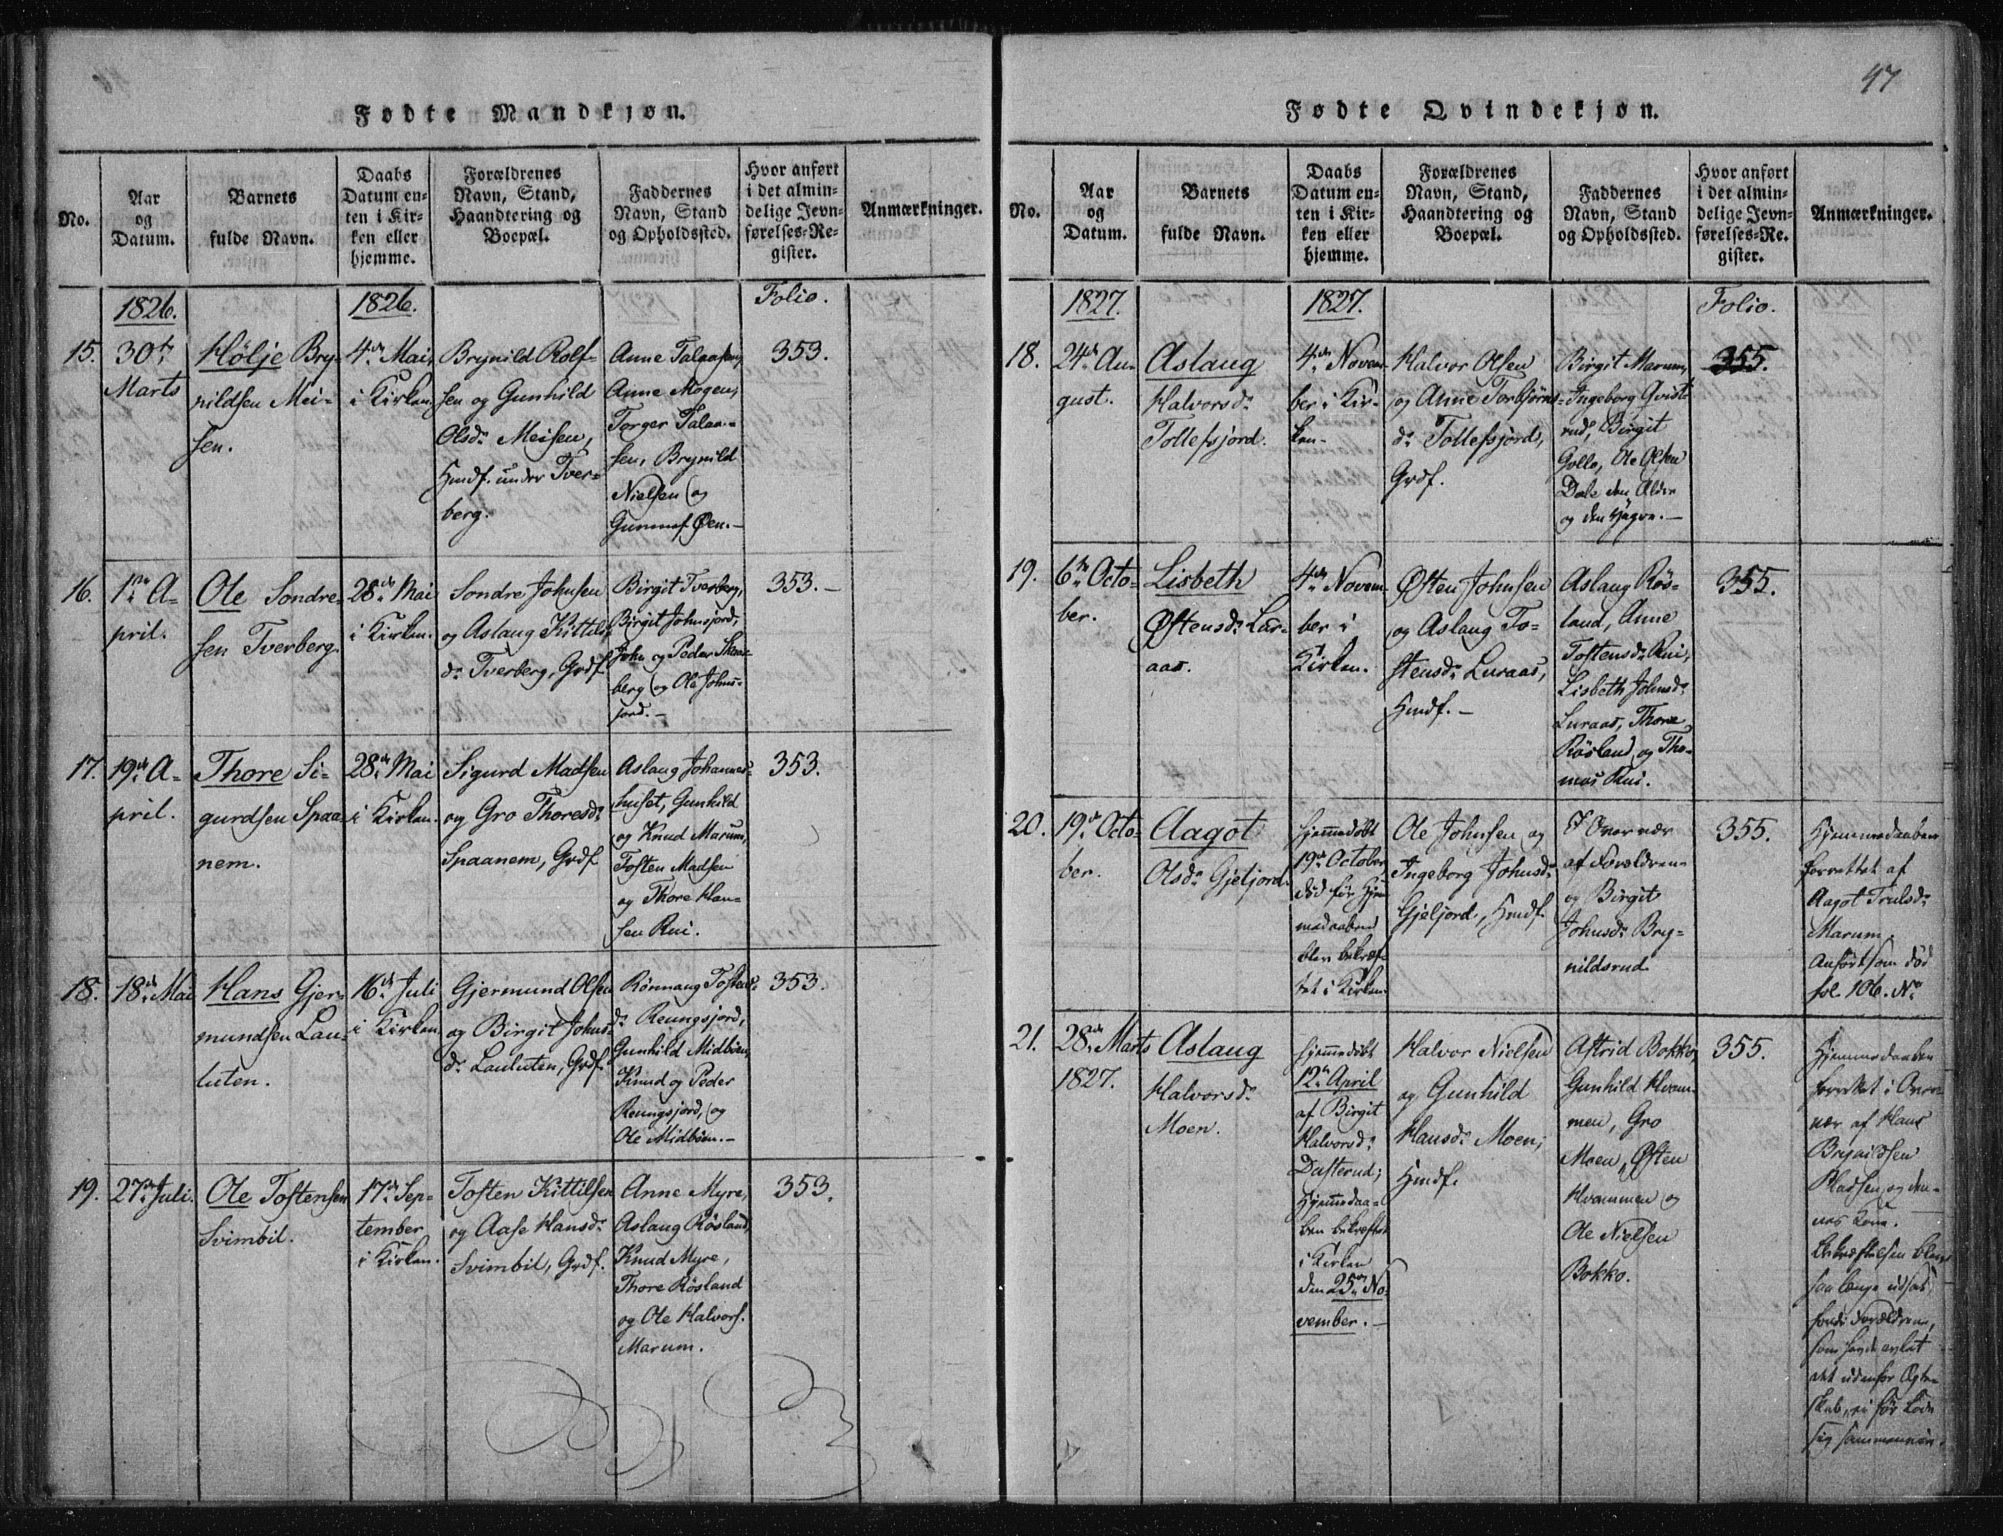 47
Fødte Mandkjøn.
No.
Aar
og
Datum.
Barnets
fulde Navn.
Daabs
Datum en-
ten i Kir-
ken eller
hjemme.
Forældrenes
Navn, Stand,
Haandtering og
Boepæl.
Faddernes
Navn, Stand
og Opholdssted.
Hvor anført
i det almin-
delige Jevn-
førelses-Re-
gister.
Anmærkninger.
1826.
1826.
Folio.
15.
30te
Marts
Hölje Bry-
nildsen Mei-
sen.
4de Mai,
i Kirken.
Brynild Rolf-
sen og Gunhild
Olsdr Meisen,
Hmdf. under Tver-
berg.
Anne Talaasen,
Anne Mogen,
Torger Talaa-
sen, Brynild
Nielsen og
Gunnuf Øen.-
353.
16.
1ste A-
pril.
Ole Sondre-
sen Tverberg.
28de Mai
i Kirken.
Sondre Johnsen
og Aslaug Kittils-
dr Tverberg, Grdf.
Birgit Tverberg,
Birgit Johnsjord,
John og Peder Skaa-
berg og Ole Johns-
jord.-
353.-
17.
19de A-
pril.
Thore Si-
gurdsen Spaa-
nem.
28de Mai
i Kirken.
Sigurd Madsen
og Gro Thoresdr
Spaanem, Grdf.
Aslaug Johannes-
huset, Gunhild
og Knud Marum,
Tosten Madsen
og Thore Han-
sen Rui.
353.
18.
18de Mai
Hans Gjer-
mundsen Lau-
luten.
16de Juli
i Kirken.
Gjermund Olsen
og Birgit Johns-
dr Lauluten, Grdf.
Rönnaug Tostens-
dr Reungsjord,
Gunhild Midböen,
Knud og Peder
Reungsjord, og
Ole Midböen.-
353.
19.
27de Juli.
Ole Tostensen
Svimbil.
17de Sep-
tember
i Kirken.
Tosten Kittilsen
og Aase Hansdr
Svimbil, Grdf.
Anne Myre,
Aslaug Røsland,
Knud Myre,
Thore Røsland
og Ole Halvors.
Marum.
353.
Fødte Qvindekjøn.
No.
Aar
og
Datum.
Barnets
fulde Navn.
Daabs
Datum en-
ten i Kir-
ken eller
hjemme.
Forældrenes
Navn, Stand,
Haandtering og
Boepæl.
Faddernes
Navn, Stand
og Opholdssted.
Hvor anført
i det almin-
delige Jevn-
førelses-Re-
gister.
Anmærkninger.
1827.
1827.
Folio.
18.
24de Au-
gust.
Aslaug
Halvorsdr
Tollefsjord.
4de Novem-
ber i Kir-
ken.
Halvor Olsen
og Anne Torbjörns-
dr Tollefsjord,
Grdf.
Birgit Marum,
Ingeborg Qvist-
rud, Birgit
Ole Olsen
Dale den Ældre
og den Yngre.-
355.
19.
6te Octo-
ber.
Lisbeth
Østensdr Lur-
aas.
4de Novem-
ber i
Kirken.
Østen Johnsen
og Aslaug To-
stensdr Luraas,
Hmdf.-
Aslaug Røs-
land, Anne
Tostensdr Rui,
Lisbeth Johnsdr
Luraas, Thore
Røsland og Tho-
mas Rui.
355.
20.
19de Octo-
ber.
Aagot
Olsdr Gjeljord.
Hjemmedöbt
19de October
död før Hjem-
medaaben
blev bekræf-
tet i Kirken.
Ole Johnsen og
Ingeborg Johnsdr
Gjeljord, Hmdf.
I Overvær
af Forældrene
og Birgit
Johnsdr Bry-
nildsrud.
355.
Hjemmedaaben
forrettet af
Aagot Trulsdr
Marum.
Anført som död
fol. 106. No
21.
28de Marts
1827.
Aslaug
Halvorsdr
Moen.
Hjemmedöbt
12te April
af Birgit
Halvorsdr
Dasterud;
Hjemmedaa-
ben bekræftet
i Kirken
den 25de No-
vember.-
Halvor Nielsen
og Gunhild
Hansdr Moen,
Hmdf.
Astrid Bokko,
Gunhild Kvam-
men, Gro
Moen, Østen
Kvammen og
Ole Nielsen
Bokko.
355.
Hjemmedaaben
forrettet i Over-
vær af Hans
Brynildsen
Pladsen og den-
nes Kone.
Bekræftelsen blev
saa længe udsat,
fordi Forældrene,
som havde avlet
det udenfor Ægte-
skab, ei før lode
sig sammenvie.